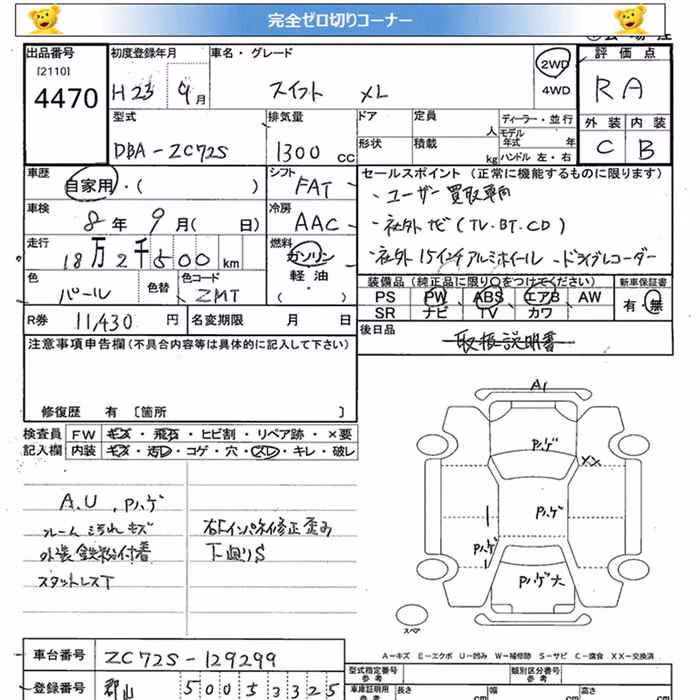 完全ゼロ切りコーナー
出品番号
[2110]
4470
初度登録年月
H23 9月
車名・グレード
スイフト XL
2WD
4WD
評価点
RA
外装 内装
C B
型式
DBA-ZC72S
排気量
1300 cc
ドア
形状
定員 人
積載 kg
ディーラー・並行
モデル年式 年
ハンドル 左・右
車歴
自家用・( )
シフト
FAT
セールスポイント (正常に機能するものに限ります)
・ユーザー買取車両
・社外ナビ(TV・BT・CD)
・社外15インチアルミホイール ・ドライブレコーダー
車検
8年 9月( 日)
冷房
AAC
走行
18万2千500km
燃料
ガソリン
軽油
( )
色
パール
色替
色コード
ZMT
装備品 (純正品に限り○をつけてください)
PS PW ABS エアB AW
SR ナビ TV カワ
新車保証書
有・無
R券 11,430円
名変期限 月 日
後日品
取扱説明書
注意事項申告欄(不具合内容等は具体的に記入して下さい)
修復歴 有 [箇所 ]
検査員
記入欄
FW キズ・飛石・ヒビ割・リペア跡・×要
内装 キズ・汚レ・コゲ・穴・スレ・キレ・破レ
A.U , Pハゲ
フレーム汚れキズ
外装鉄粉付着
スタットレスT
右Fインパネ修正歪み
下廻りS
A1
Pハゲ
XX
Pハゲ
Pハゲ
Pハゲ大
スペア
A-キズ E-エクボ U-凹み W-補修跡 S-サビ C-腐食 XX-交換済
車台番号 ZC72S-129299
登録番号 郡山 500 5 3325
型式指定番号
参考
類別区分番号
参考
車庫証明用
参考
長さ cm
幅 cm
高さ cm